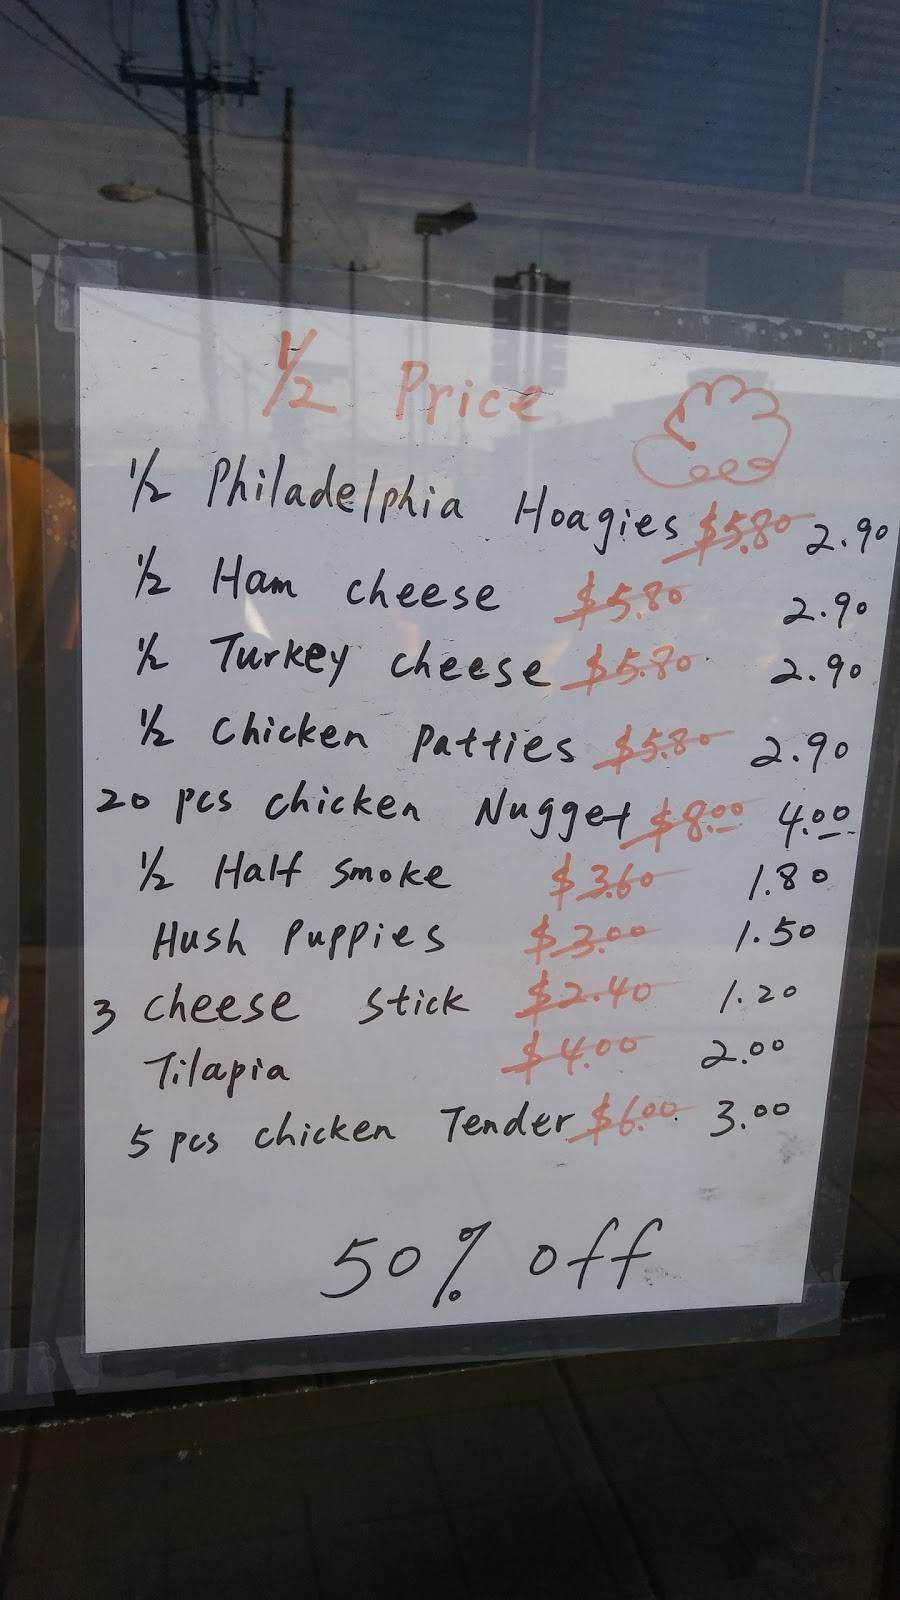 1/2 Price
1/2 Philadelphia Hoagies $5.80 2.90
1/2 Ham cheese $5.80 2.90
1/2 Turkey cheese $5.80 2.90
1/2 Chicken Patties $5.80 2.90
20 pcs chicken Nugget $8.00 4.00
1/2 Half smoke $3.60 1.80
Hush Puppies $3.00 1.50
3 cheese stick $2.40 1.20
Tilapia $4.00 2.00
5 pcs chicken Tender $6.00 3.00
50% off